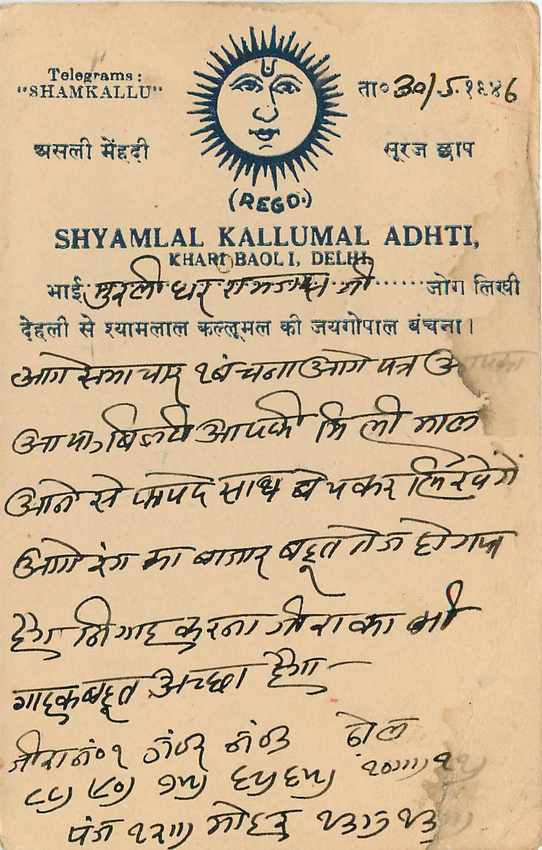 Telegrams:
"SHAMKALLU"
ता० 30/5.१९४6
असली मेंहदी
सूरज छाप
(REGD.)
SHYAMLAL KALLUMAL ADHTI,
KHARI BAOLI, DELHI.
भाई मुरली धर रामदास जी ...... जोग लिखी
देहली से श्यामलाल कल्लूमल की जयगोपाल बंचना।
आगे समाचार १ बंचना आगे पत्र आपका
आया, बिल्टी आपकी मिली माल
आने से फायदे साथ बेचकर लिखेंगे
आगे रंग का बाजार बहूत तेज हो गया
है निगाह करना जीरा का भी
गाहक बहूत अच्छा है
जीरा नं० १ नं० २ नं० ३